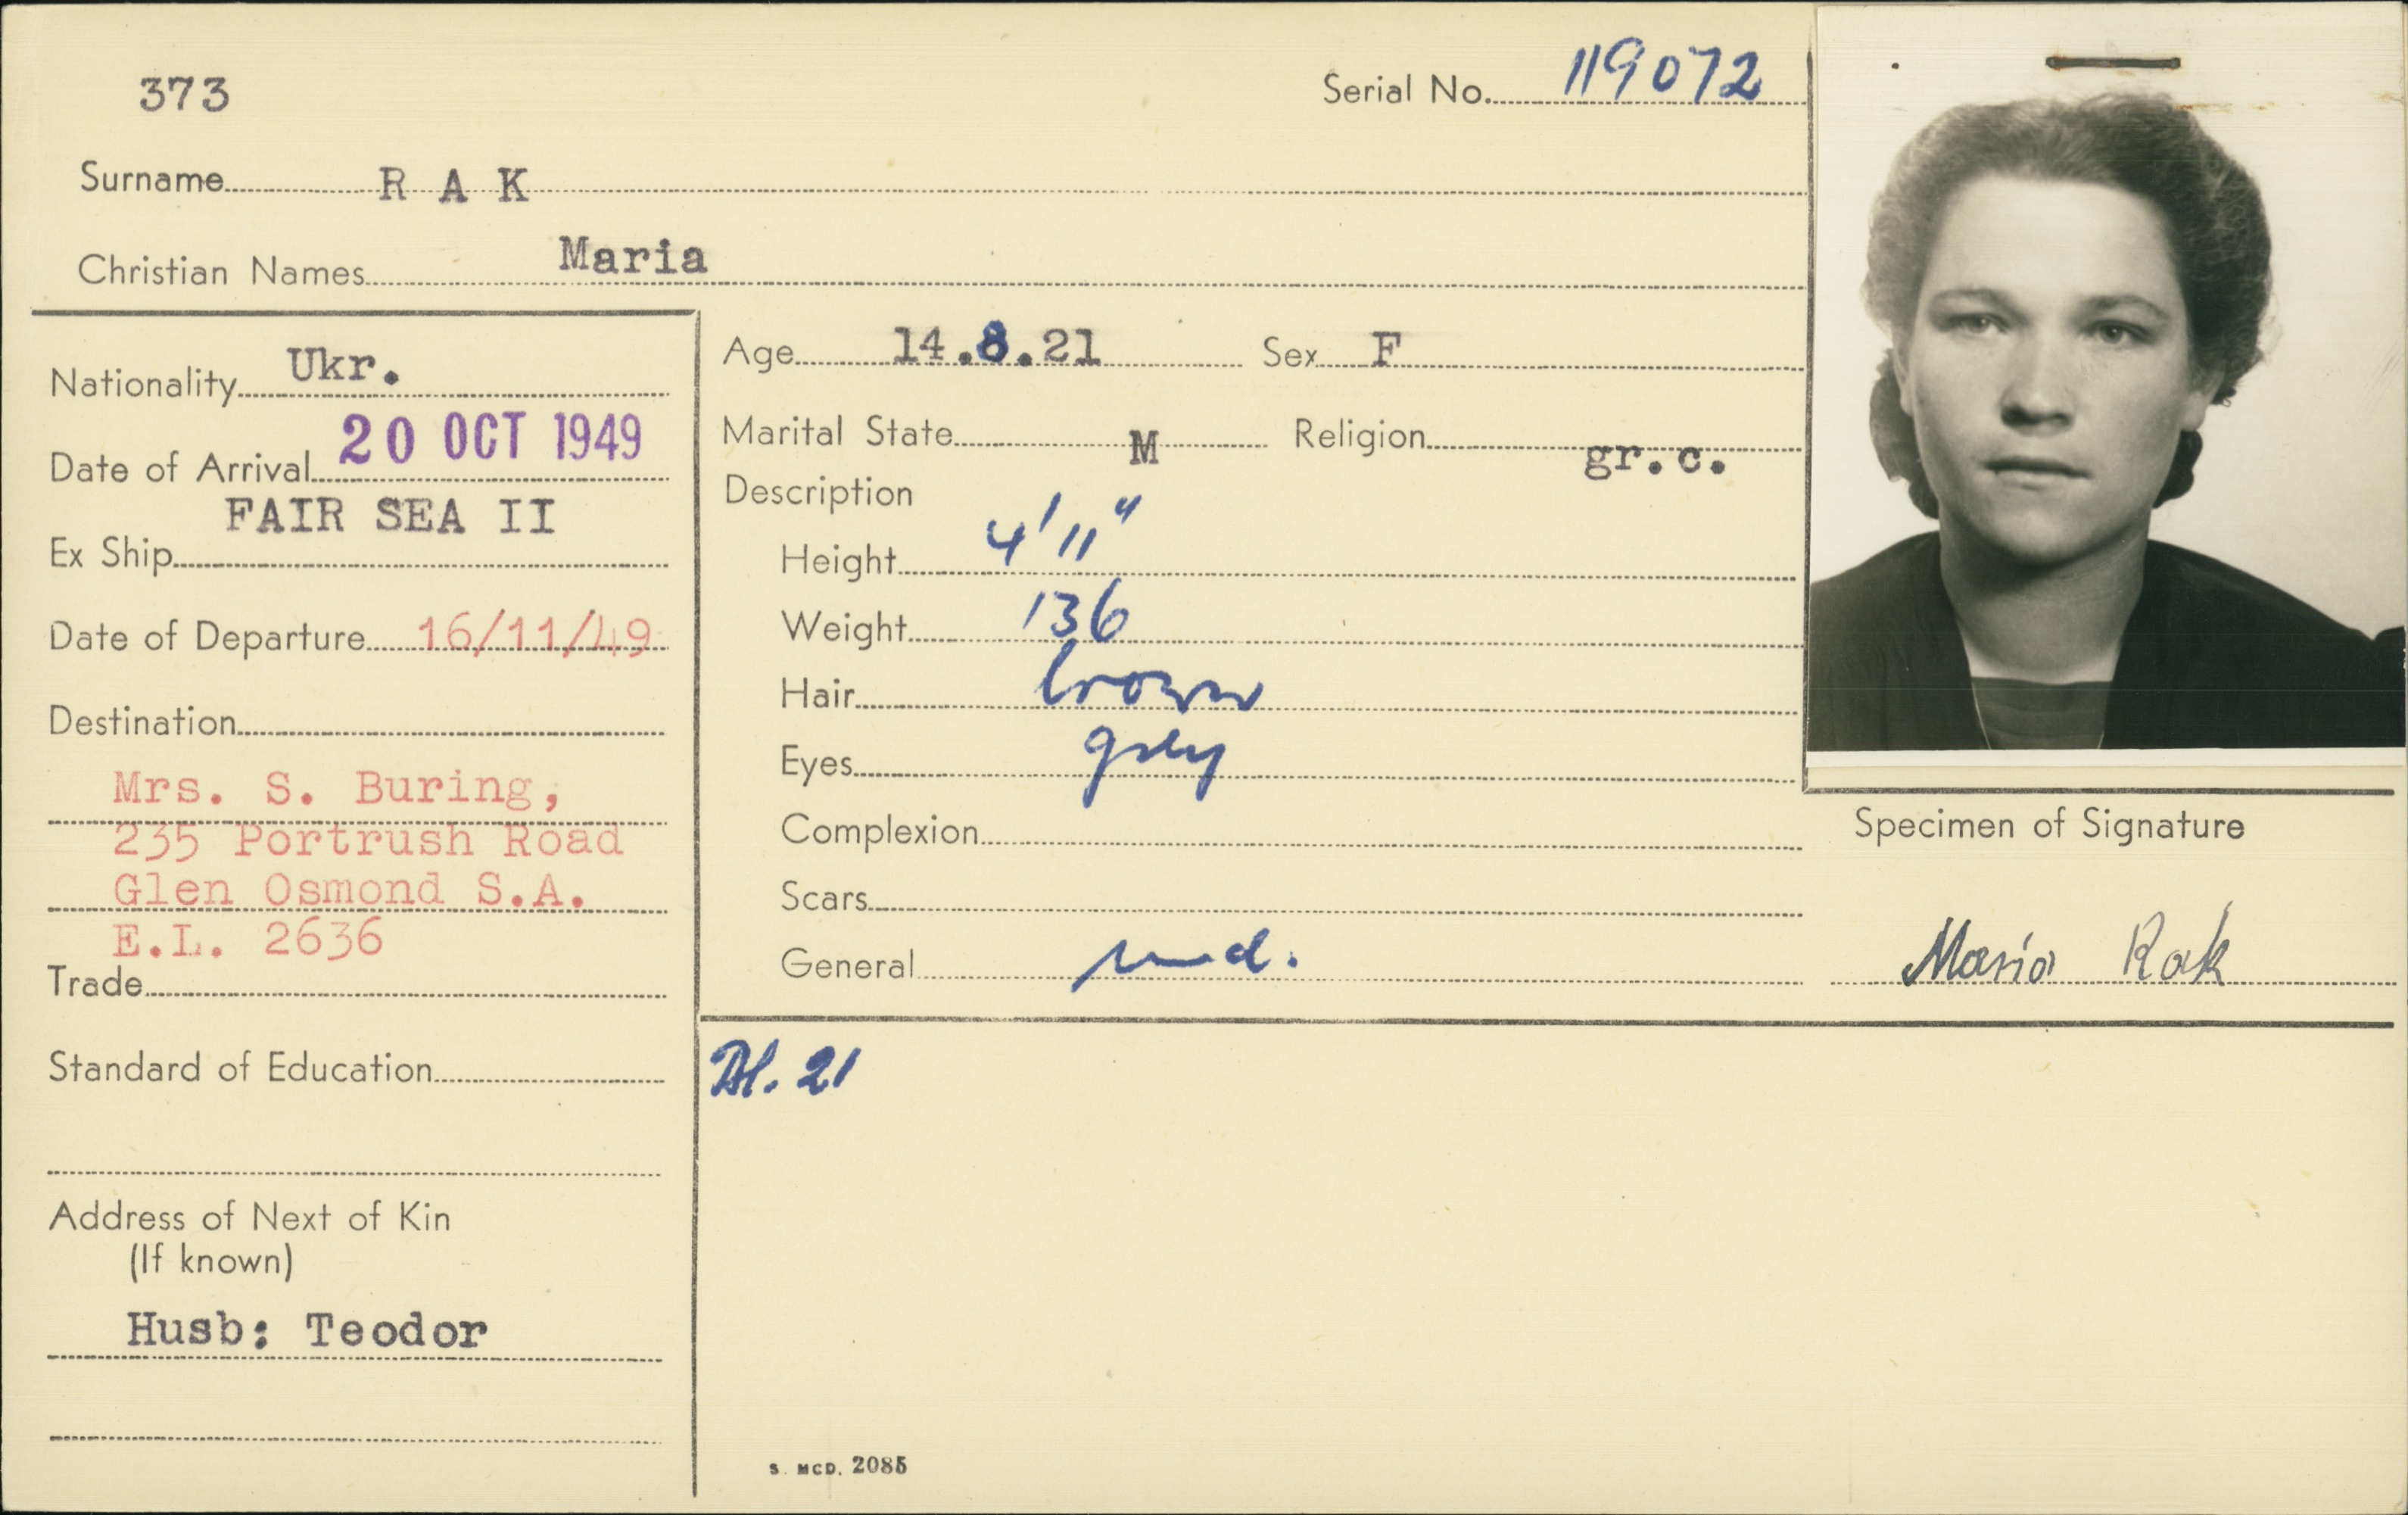 373
Serial No. 119072
Surname R A K
Christian Names Maria
Nationality Ukr.
Date of Arrival 20 OCT 1949
Ex Ship FAIR SEA II
Date of Departure 16/11/49
Destination
Mrs. S. Buring,
235 Portrush Road
Glen Osmond S.A.
E.L. 2636
Trade
Standard of Education
Address of Next of Kin
(If known)
Husb: Teodor
Age 14.8.21 Sex F
Marital State M Religion gr.c.
Description
Height 4'11"
Weight 136
Hair brown
Eyes grey
Complexion
Scars
General med.
Specimen of Signature
Maria Rak
Bl. 21
S. MCD. 2085